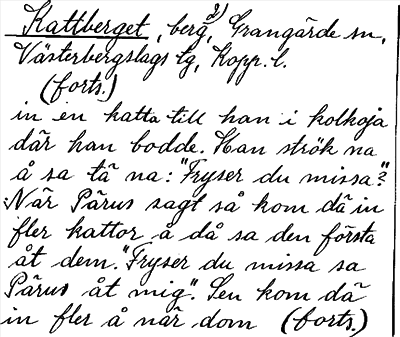 Kattberget, berg, 2) Grangärde sn,
Västerbergslags tg, Kopp. l.
(forts.)
in en katta till han i kolkoja
där han bodde. Han strök na
å sa tä na: "Fryser du missa?"
När Pärus sagt så kom dä in
fler kattor å då sa den första
åt dem. "Fryser du missa sa
Pärus åt mig". Sen kom dä
in fler å när dom (forts.)